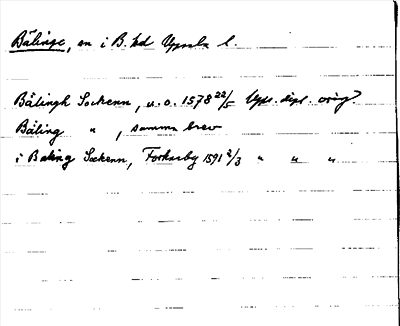 Bälinge, sn i B. hd Uppsala l.
Bälingh Sockenn, u. o. 1578 22/5 Upps. dipl. orig.
Bäling " , samma brev
i Baling Sockenn, Forkarby 1591 2/3 " " "